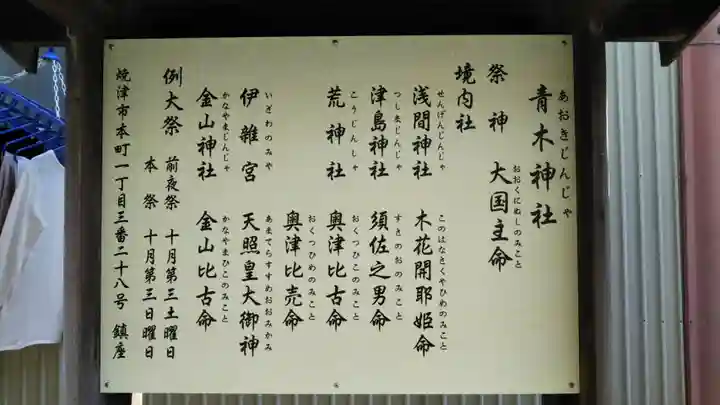 青木神社
あおきじんじゃ
祭神 大国主命
おおくにぬしのみこと
境内社
浅間神社 木花開耶姫命
せんげんじんじゃ このはなさくやひめのみこと
津島神社 須佐之男命
つしまじんじゃ すさのおのみこと
荒神社 奥津比古命
こうじんしゃ おくつひこのみこと
奥津比売命
おくつひめのみこと
伊雑宮 天照皇大御神
いざわのみや あまてらすすめおおみかみ
金山神社 金山比古命
かなやまじんじゃ かなやまひこのみこと
例大祭 前夜祭 十月第三土曜日
本祭 十月第三日曜日
焼津市本町一丁目三番二十八号 鎮座